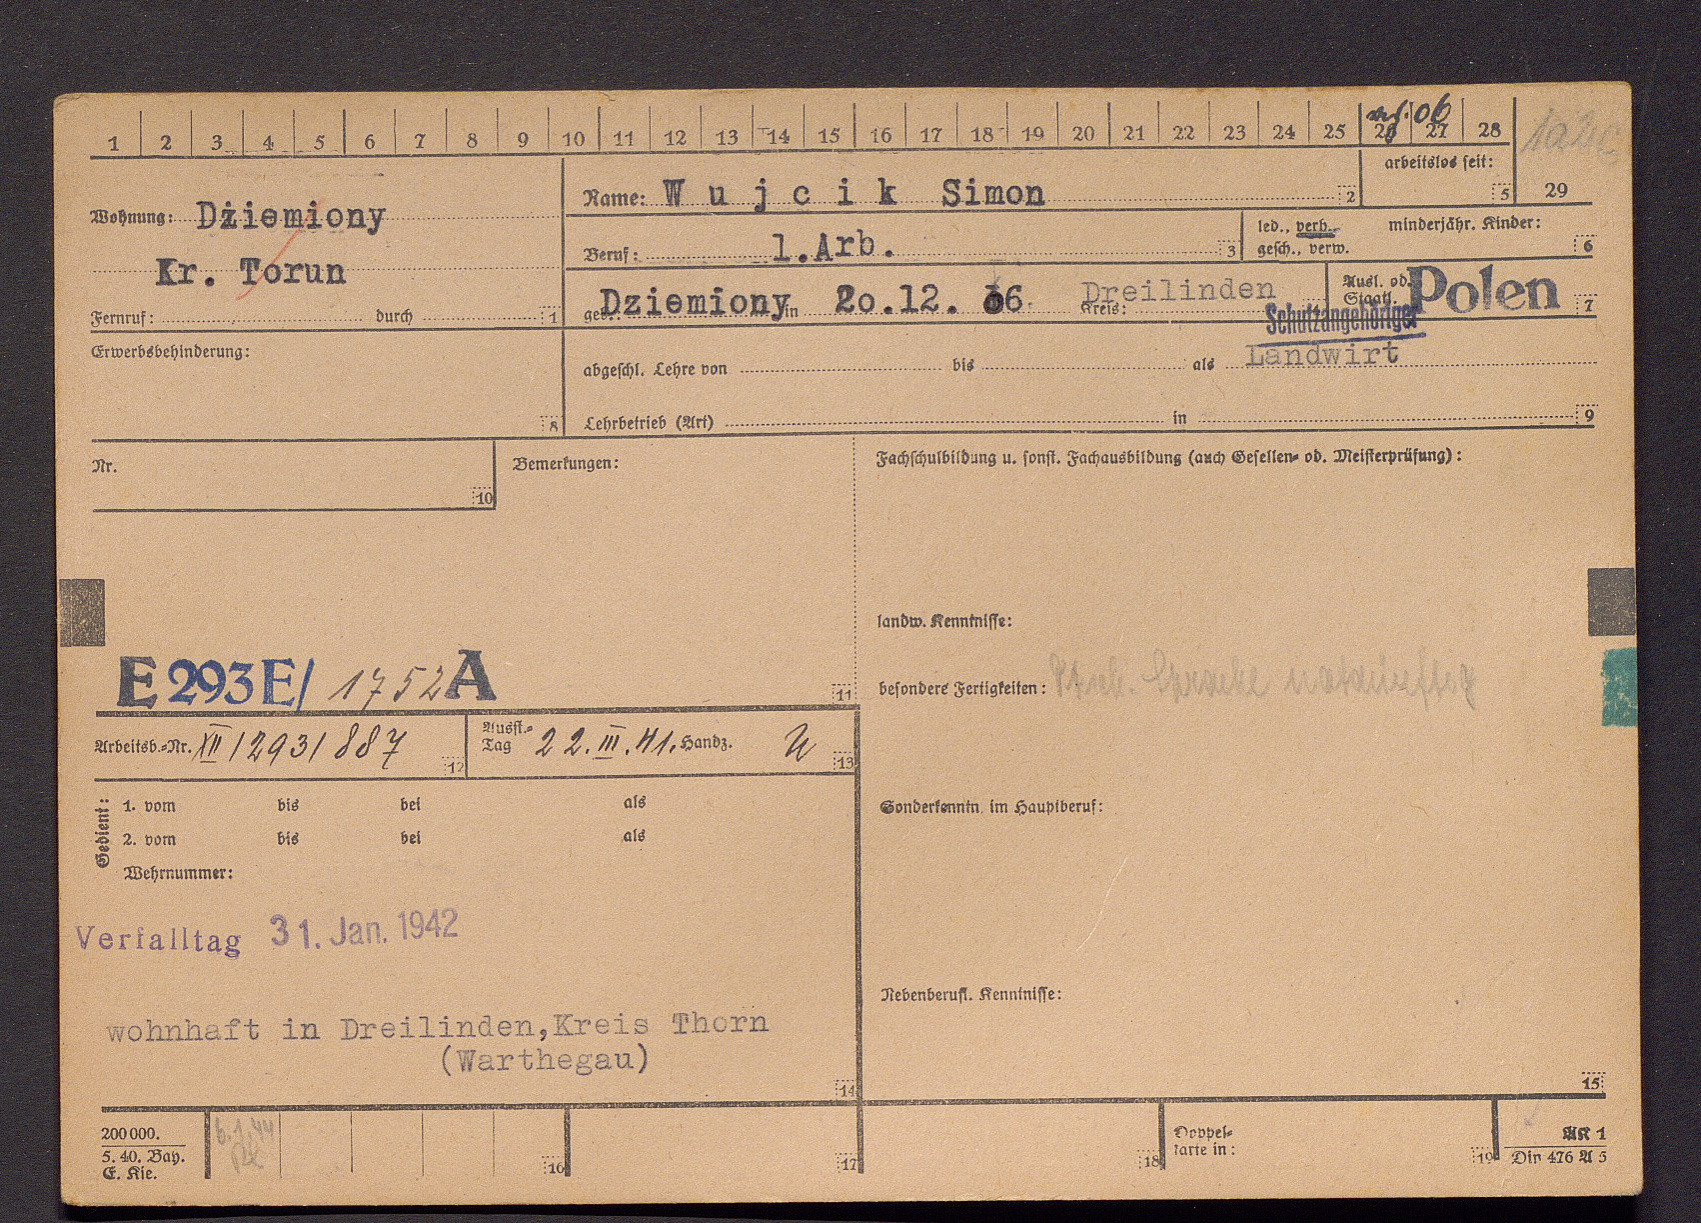 1 2 3 4 5 6 7 8 9 10 11 12 13 14 15 16 17 18 19 20 21 22 23 24 25 26 27 28
06
arbeitslos seit:
5 29
Wohnung: Dziemiony
Kr. Torun
Fernruf: durch 1
Name: Wujcik Simon 2
Beruf: l.Arb. 3
led., verb., gesch., verw.
minderjähr. Kinder:
6
geb.: Dziemiony in 20.12. 06 Kreis: Dreilinden
Ausl. od. Staatl. Polen 7
Schutzangehöriger
Erwerbsbehinderung:
8
abgeschl. Lehre von bis als Landwirt
Lehrbetrieb (Art) in 9
Nr.
10
Bemerkungen:
Fachschulbildung u. sonst. Fachausbildung (auch Gesellen- od. Meisterprüfung):
landw. Kenntnisse:
E 293 E/ 1752 A
11
besondere Fertigkeiten:
Arbeitsb.-Nr. XII/293/887 12
Ausst.-Tag 22.III.41. Handz. 13
Gedient: 1. vom bis bei als
2. vom bis bei als
Wehrnummer:
Sonderkenntn. im Hauptberuf:
Verfalltag 31. Jan. 1942
Nebenberufl. Kenntnisse:
wohnhaft in Dreilinden,Kreis Thorn
(Warthegau)
14
15
200 000.
5. 40. Bay.
E. Kie.
6.1.44
16
17
18
Doppel-
karte in:
19
AK 1
Din 476 A 5